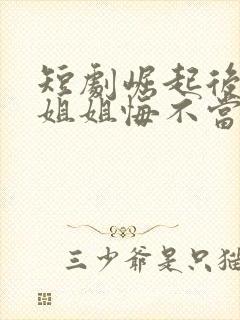 短劇崛起後
姐姐悔不當
三少爺是只貓